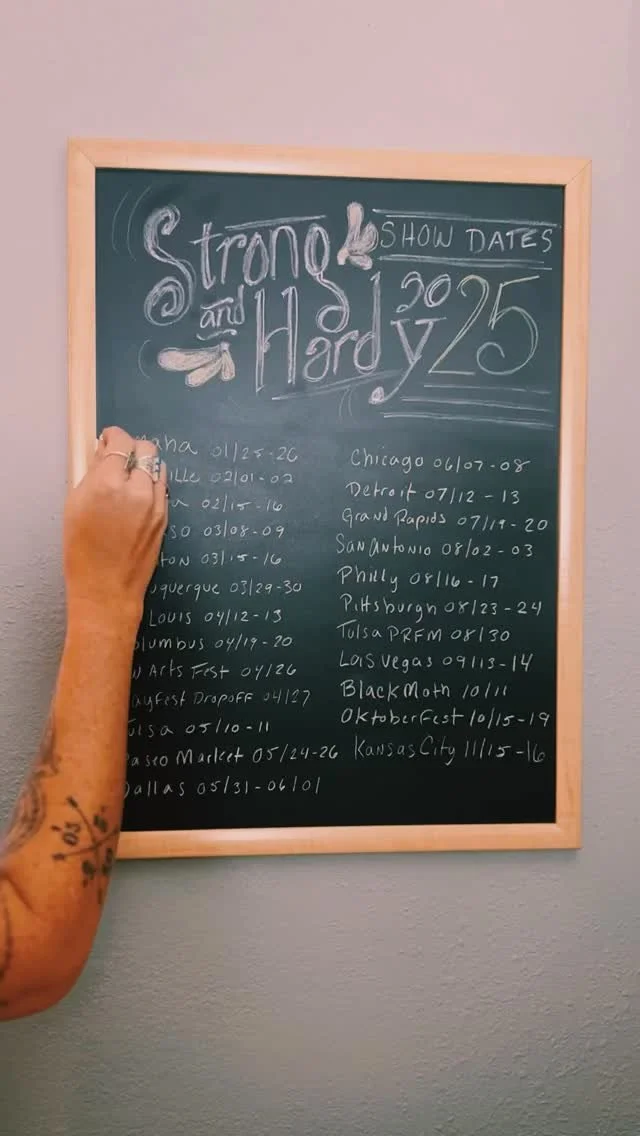 Strong
and
Hardy
SHOW DATES
2025
01/25-26
02/01-02
02/15-16
03/08-09
03/15-16
03/29-30
Louis 04/12-13
04/19-20
Arts Fest 04/26
DROPOFF 04/27
05/10-11
Market 05/24-26
05/31-06/01
Chicago 06/07-08
Detroit 07/12-13
Grand Rapids 07/19-20
San Antonio 08/02-03
Philly 08/16-17
Pittsburgh 08/23-24
Tulsa PRFM 08/30
Las Vegas 09/13-14
Black Moth 10/11
OktoberFest 10/15-19
Kansas City 11/15-16